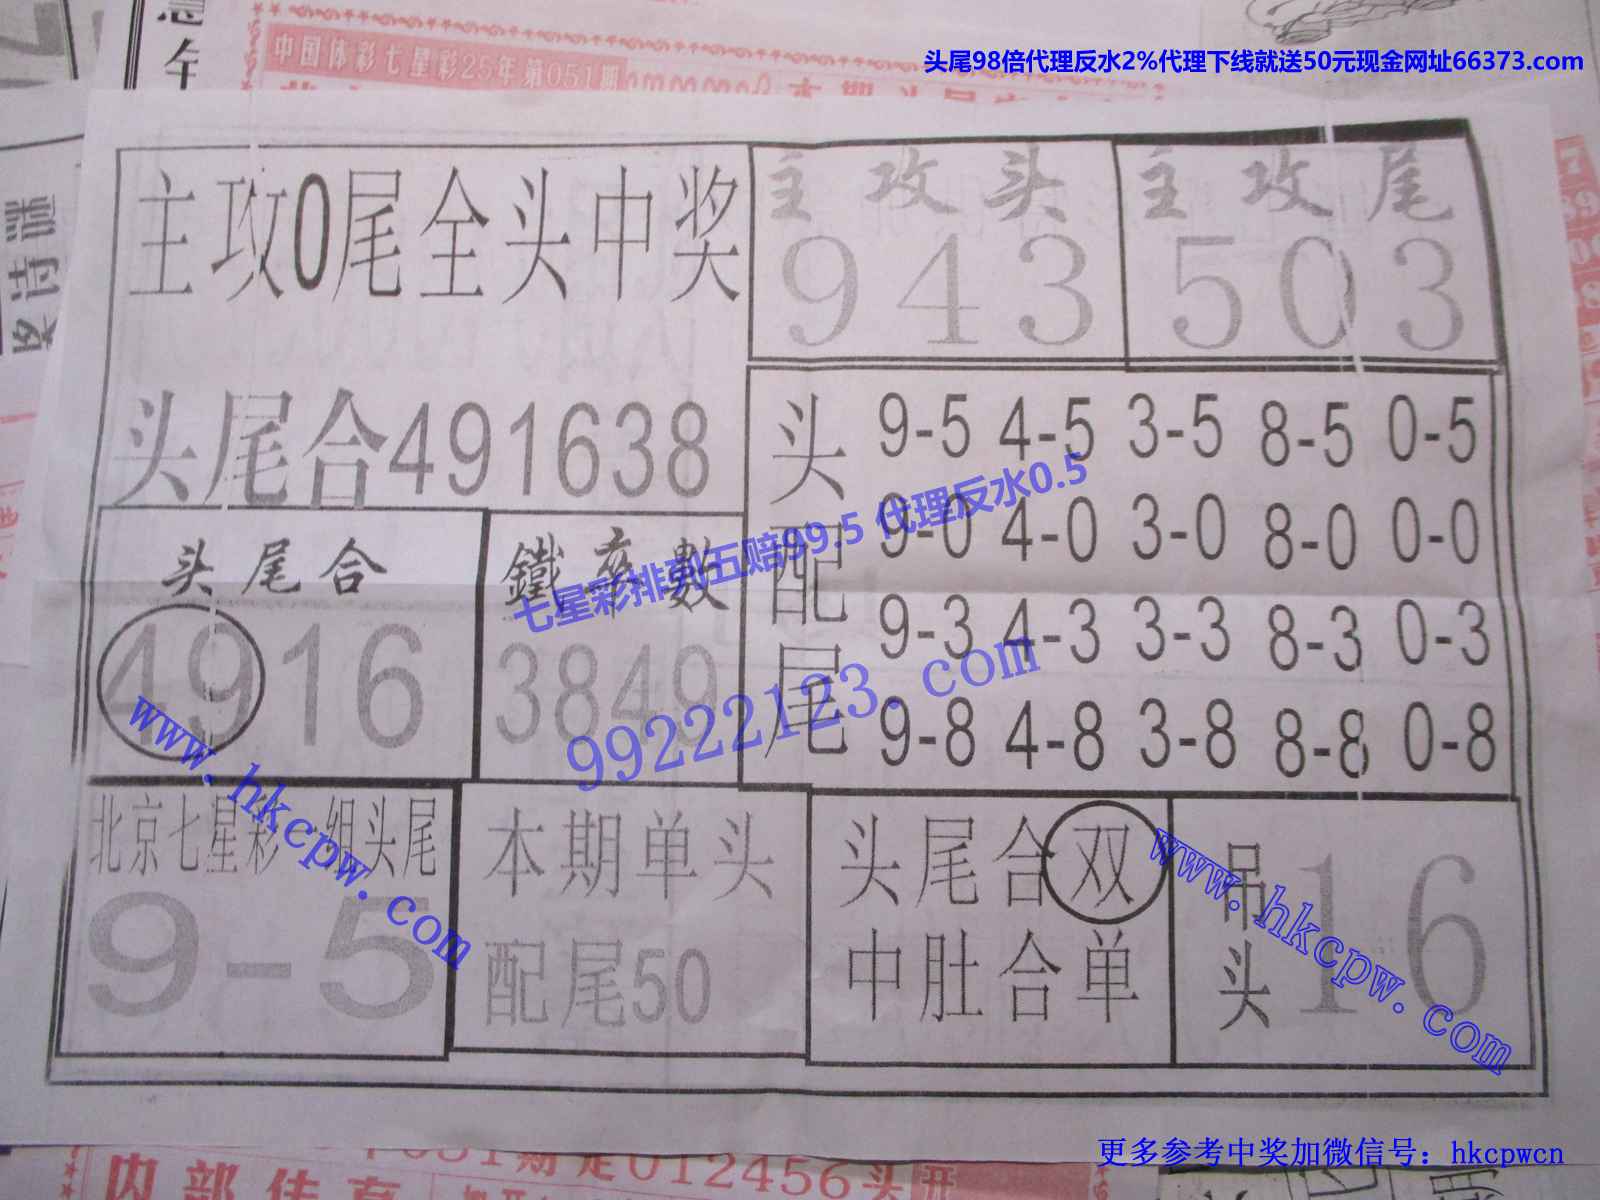 头尾98倍代理反水2%代理下线就送50元现金网址66373.com
中国体彩七星彩25年第051期
奖诗谜
主攻0尾全头中奖
主攻头
943
主攻尾
503
头尾合491638
头配尾
9-5 4-5 3-5 8-5 0-5
9-0 4-0 3-0 8-0 0-0
9-3 4-3 3-3 8-3 0-3
9-8 4-8 3-8 8-8 0-8
头尾合
4916
鐵卒數
3849
七星彩排列五赔99.5 代理反水0.5
99222123.com
www.hkcpw.com
北京七星彩一组头尾
9-5
本期单头
配尾50
头尾合双
中肚合单
吊头
16
www.hkcpw.com
更多参考中奖加微信号：hkcpwcn
051期定012456头开
内部传真